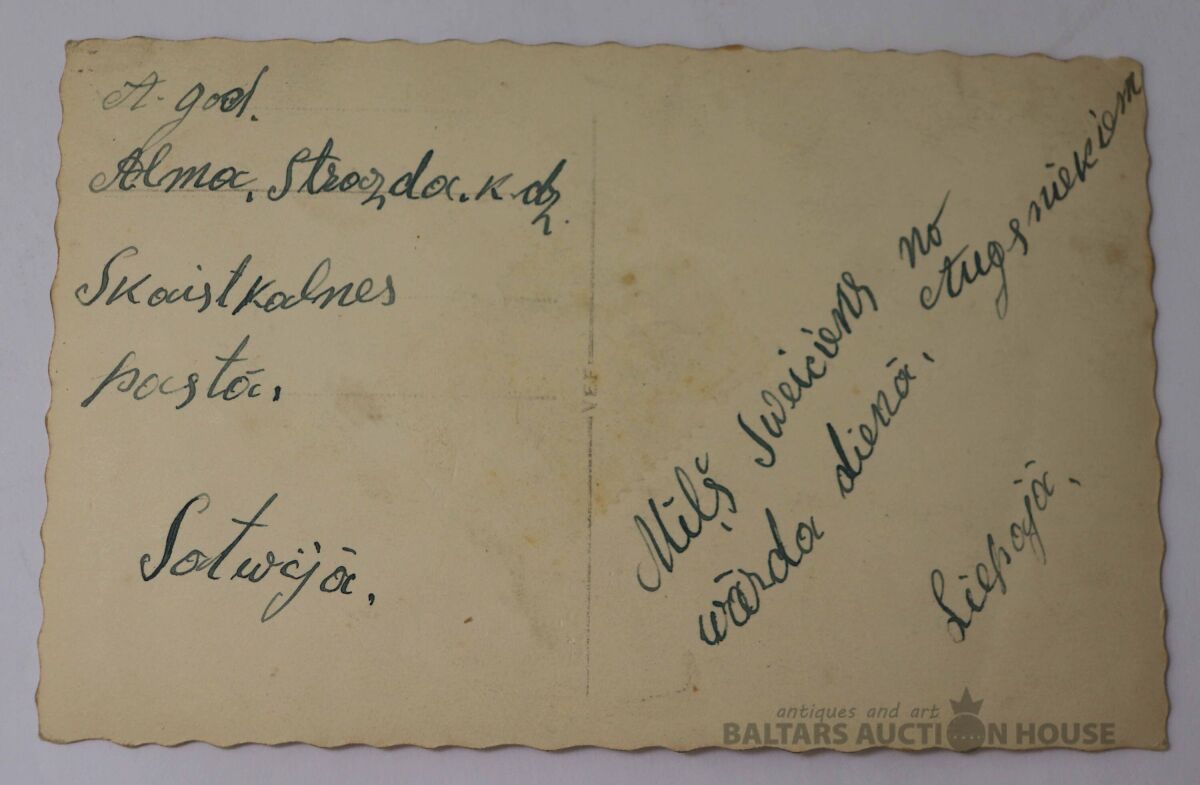 A. god.
Alma, Strazda. k. dz.
Skaistkalnes
pastā.
Latwijā.
VEF
Mīļš sweiciens no
wārda dienā. Augsniekiem
Liepajā.
antiques and art
BALTARS AUCTION HOUSE